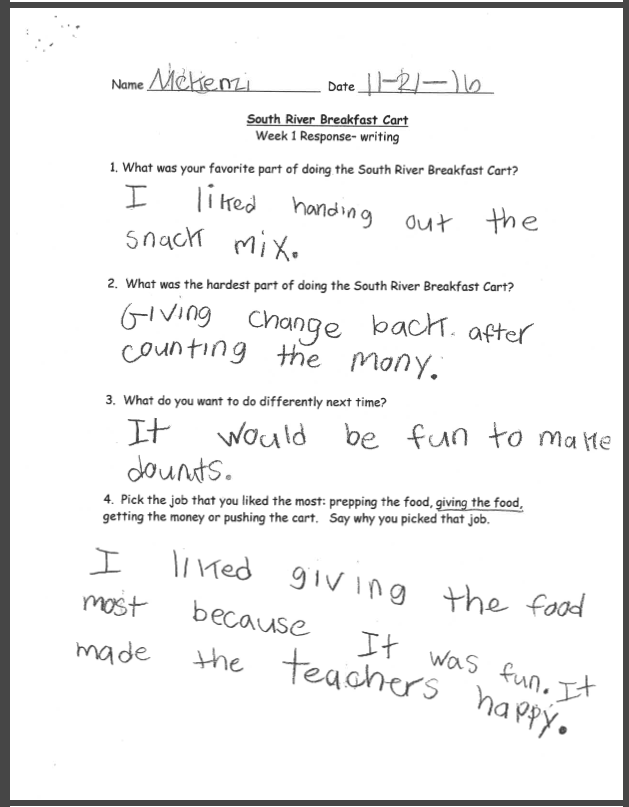 Name Mckenzi Date 11-21-16
South River Breakfast Cart
Week 1 Response- writing
1. What was your favorite part of doing the South River Breakfast Cart?
I liked handing out the
snack mix.
2. What was the hardest part of doing the South River Breakfast Cart?
Giving change back. after
counting the mony.
3. What do you want to do differently next time?
It would be fun to make
dounts.
4. Pick the job that you liked the most: prepping the food, giving the food,
getting the money or pushing the cart. Say why you picked that job.
I liked giving the food
most because It was fun. It
made the teachers happy.